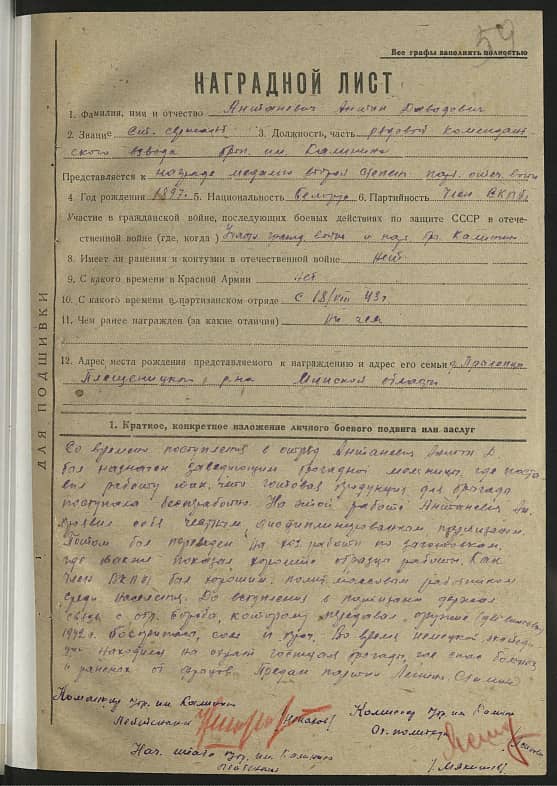 59
Все графы заполнять полностью
НАГРАДНОЙ ЛИСТ
1. Фамилия, имя и отчество Антанович Антин Давидович
2. Звание ст. сержант 3. Должность, часть рядовой комендант-
ского взвода бриг. им. Калинина
Представляется к награде медалью второй степени парт. отеч. войны
4. Год рождения 1897г. 5. Национальность белорус 6. Партийность член ВКП/б/
Участие в гражданской войне, последующих боевых действиях по защите СССР в отече-
ственной войне (где, когда) Участ. гражд. войны и
8. Имеет ли ранения и контузии в отечественной войне нет
9. С какого времени в Красной Армии нет
10. С какого времени в партизанском отряде с 18/VIII 43 г.
11. Чем ранее награжден (за какие отличия) ни чем
12. Адрес места рождения представляемого к награждению и адрес его семьи д.
Плещеницкого р-на Минской области
ДЛЯ ПОДШИВКИ
1. Краткое, конкретное изложение личного боевого подвига или заслуг
Со времени поступления в отряд Антанович Антин Д.
был назначен заведующим бригадной мельницы, где поста-
вил работу так, что готовая продукция для бригады
поступала бесперебойно. На этой работе Антанович Ан.
проявил себя честным, дисциплинированным партизаном.
Потом был переведен на хоз. работы по заготовкам,
где также показал хорошие образцы работы. Как
член ВКП/б/ был хорошим полит. массовым работником
среди населения. До вступления в партизаны держал
связь с отр. Борьба, которому передавал оружие
1942 г. боеприпасы, соль и проч. Во время немецкой блокады
находился на охране госпиталя бригады, где спас больных
и раненых от врагов. Предан партии Ленина, Сталина
Командир бр. им. Калинина
Комиссар бр. им. Калин.
Ст. политрук
Нач. штаба бр. им. Калинина